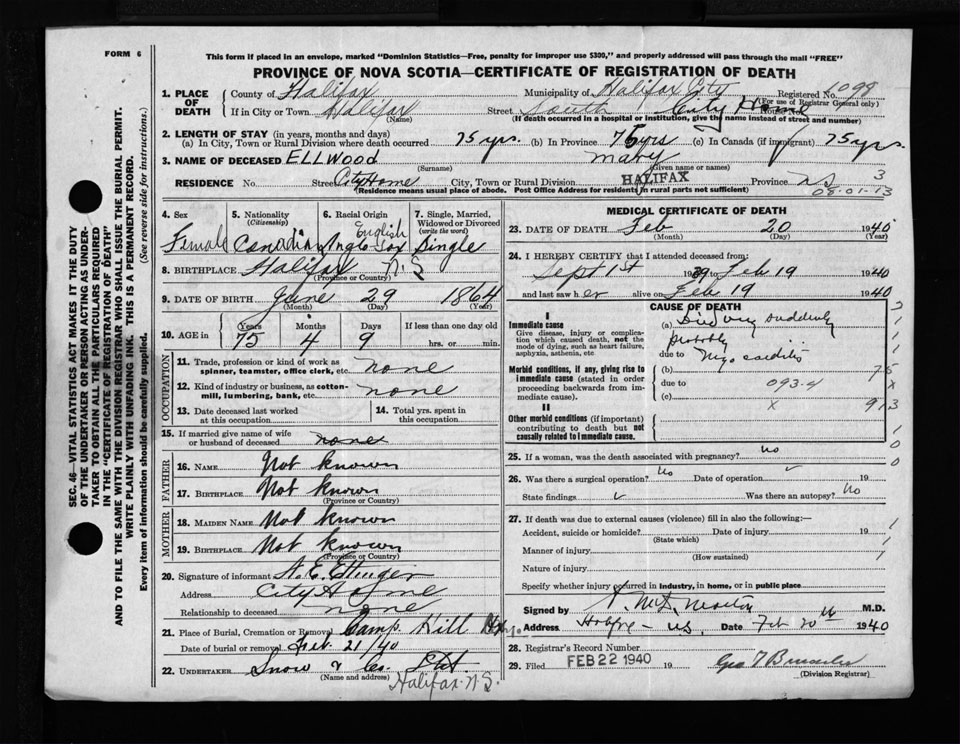 FORM 6
This form if placed in an envelope, marked "Dominion Statistics—Free, penalty for improper use $300," and properly addressed will pass through the mail "FREE"
PROVINCE OF NOVA SCOTIA—CERTIFICATE OF REGISTRATION OF DEATH
1. PLACE OF DEATH
County of Halifax Municipality of Halifax City Registered No. 1098
(For use of Registrar General only)
If in City or Town Halifax Street South City Home
(Name) (If death occurred in a hospital or institution, give the name instead of street and number)
2. LENGTH OF STAY (in years, months and days)
(a) In City, Town or Rural Division where death occurred 75 yrs. (b) In Province 75 yrs (c) In Canada (if immigrant) 75 yrs.
3. NAME OF DECEASED ELLWOOD Mary
(Surname) (Given name or names)
RESIDENCE No. Street City Home City, Town or Rural Division HALIFAX Province N.S. 3
(Residence means usual place of abode. Post Office Address for residents in rural parts not sufficient) 08-01-13
4. Sex 5. Nationality (Citizenship) 6. Racial Origin 7. Single, Married, Widowed or Divorced (write the word)
English
Female Canadian Anglo Sax Single
8. BIRTHPLACE Halifax N.S
(Province or Country)
9. DATE OF BIRTH June 29 1864
(Month) (Day) (Year)
10. AGE in Years Months Days If less than one day old
75 4 9 hrs. or min.
OCCUPATION
11. Trade, profession or kind of work as spinner, teamster, office clerk, etc. none
12. Kind of industry or business, as cotton-mill, lumbering, bank, etc. none
13. Date deceased last worked at this occupation 14. Total yrs. spent in this occupation
15. If married give name of wife or husband of deceased none
FATHER
16. NAME Not known
17. BIRTHPLACE Not known
(Province or Country)
MOTHER
18. MAIDEN NAME Not known
19. BIRTHPLACE Not known
(Province or Country)
20. Signature of informant A. E. Ettinger
Address City Home
Relationship to deceased none
21. Place of Burial, Cremation or Removal Camp Hill
Date of burial or removal Feb. 21/40
22. UNDERTAKER Snow & Co. Ltd.
(Name and address) Halifax N.S.
MEDICAL CERTIFICATE OF DEATH
23. DATE OF DEATH Feb 20 1940
(Month) (Day) (Year)
24. I HEREBY CERTIFY that I attended deceased from:
Sept 1st 1939 to Feb 19 1940
and last saw her alive on Feb 19 1940
CAUSE OF DEATH
I
Immediate cause
Give disease, injury or complication which caused death, not the mode of dying, such as heart failure, asphyxia, asthenia, etc
(a) Died very suddenly
probably
due to Myocarditis
Morbid conditions, if any, giving rise to immediate cause (stated in order proceeding backwards from immediate cause).
(b) 75
due to 093-4 x
(c) x 913
II
Other morbid conditions (if important) contributing to death but not causally related to immediate cause.
25. If a woman, was the death associated with pregnancy? no
26. Was there a surgical operation? no Date of operation 19
State findings Was there an autopsy? No
27. If death was due to external causes (violence) fill in also the following:—
Accident, suicide or homicide? Date of injury 19
(State which)
Manner of injury
(How sustained)
Nature of injury
Specify whether injury occurred in industry, in home, or in public place
Signed by M.D.
Address Date Feb 20th 1940
28. Registrar's Record Number
29. Filed FEB 22 1940 19
(Division Registrar)
SEC. 46—VITAL STATISTICS ACT MAKES IT THE DUTY OF THE UNDERTAKER OR PERSON ACTING AS UNDERTAKER TO OBTAIN ALL THE PARTICULARS REQUIRED IN THE "CERTIFICATE OF REGISTRATION OF DEATH"
AND TO FILE THE SAME WITH THE DIVISION REGISTRAR WHO SHALL ISSUE THE BURIAL PERMIT.
WRITE PLAINLY WITH UNFADING INK. THIS IS A PERMANENT RECORD.
Every item of information should be carefully supplied. (See reverse side for instructions.)